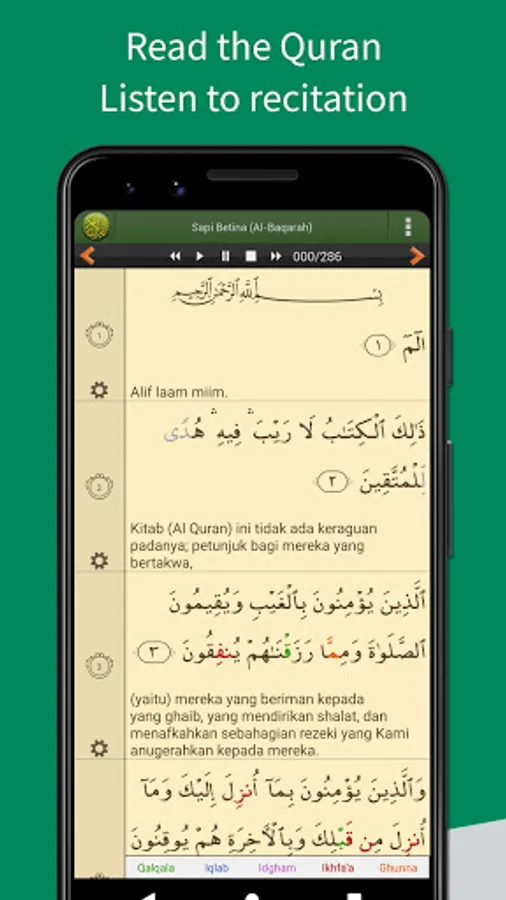 Read the Quran
Listen to recitation
Sapi Betina (Al-Baqarah)
000/286
بِسْمِ اللَّهِ الرَّحْمَٰنِ الرَّحِيمِ
1
الٓمٓ ١
Alif laam miim.
ذَٰلِكَ ٱلْكِتَٰبُ لَا رَيْبَ ۛ فِيهِ ۛ هُدًى
2
لِّلْمُتَّقِينَ ٢
Kitab (Al Quran) ini tidak ada keraguan
padanya; petunjuk bagi mereka yang
bertakwa,
ٱلَّذِينَ يُؤْمِنُونَ بِٱلْغَيْبِ وَيُقِيمُونَ
3
ٱلصَّلَوٰةَ وَمِمَّا رَزَقْنَٰهُمْ يُنفِقُونَ ٣
(yaitu) mereka yang beriman kepada
yang ghaib, yang mendirikan shalat, dan
menafkahkan sebahagian rezeki yang Kami
anugerahkan kepada mereka.
وَٱلَّذِينَ يُؤْمِنُونَ بِمَآ أُنزِلَ إِلَيْكَ وَمَآ
أُنزِلَ مِن قَبْلِكَ وَبِٱلْءَاخِرَةِ هُمْ يُوقِنُونَ
Qalqala Iqlab Idgham Ikhfa'a Ghunna